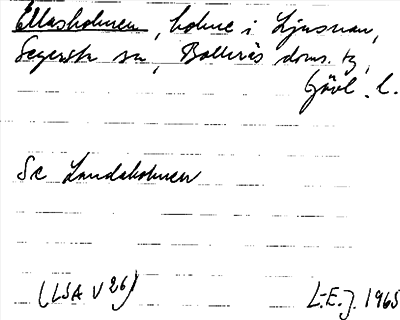 Ellasholmen, holme i Ljusnan,
Segersta sn, Bollnäs doms. tg,
Gävl. l.
Se Landaholmen
(LSA V 26)
L.E.J. 1965